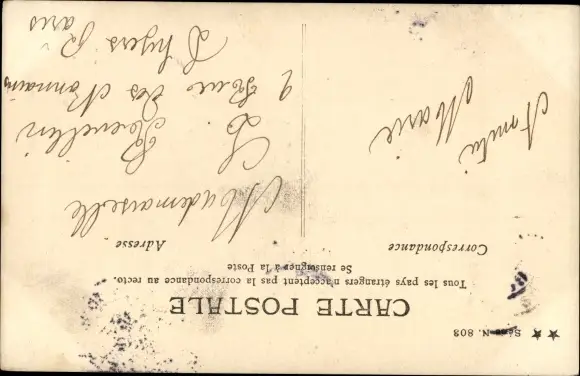 ★★ Série N. 803
CARTE POSTALE
Tous les pays étrangers n'acceptent pas la correspondance au recto.
Se renseigner à la Poste
Correspondance
Adresse
Marie
Mademoiselle
L.
9 Rue des Nonnains
D'hyères